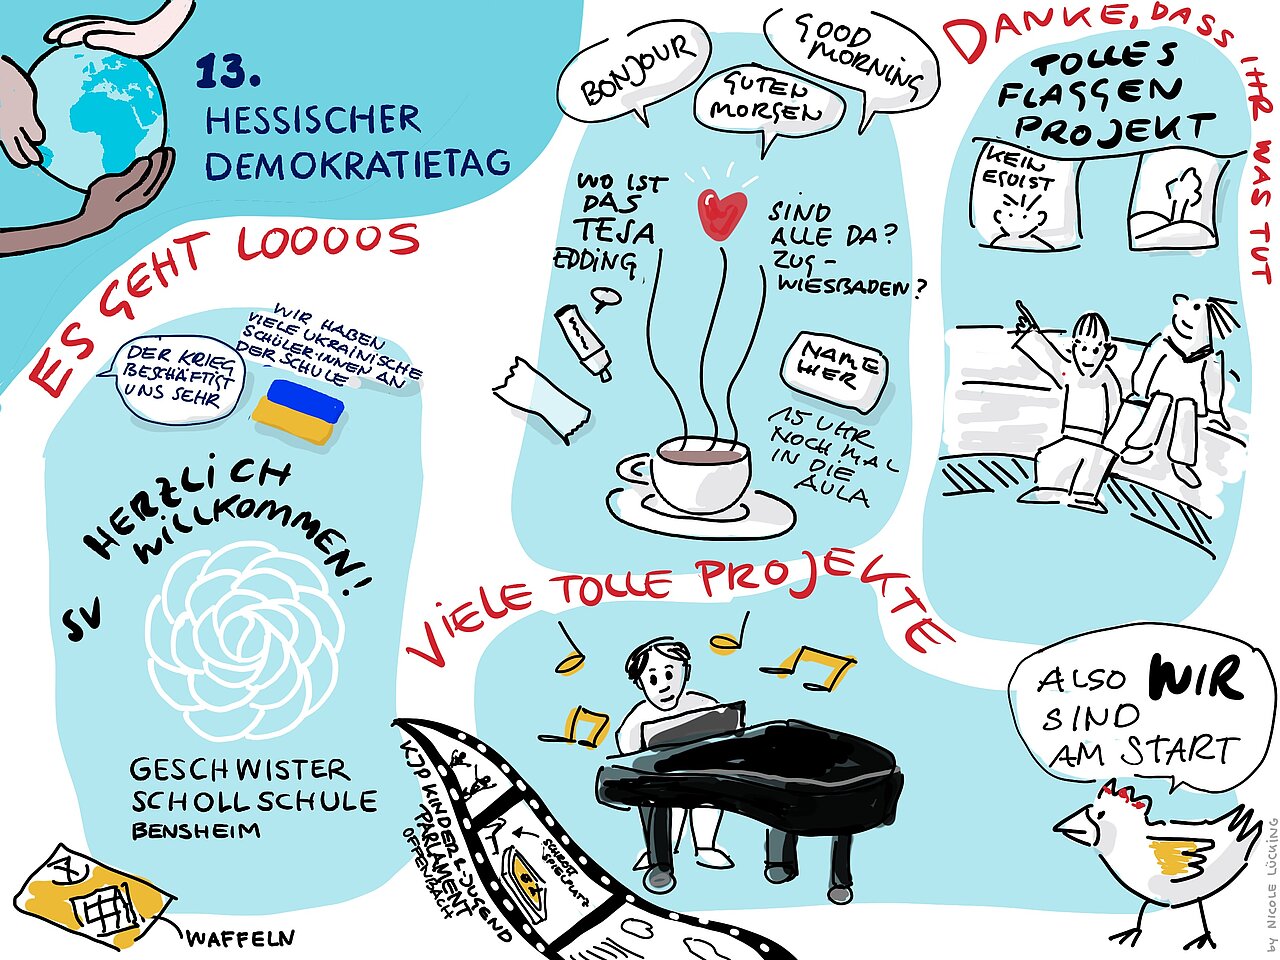 13.
HESSISCHER
DEMOKRATIETAG
ES GEHT LOOOOS
DER KRIEG
BESCHÄFTIGT
UNS SEHR
WIR HABEN
VIELE UKRAINISCHE
SCHÜLER:INNEN AN
DER SCHULE
HERZLICH
WILLKOMMEN!
SV
GESCHWISTER
SCHOLL SCHULE
BENSHEIM
WAFFELN
BONJOUR
GUTEN
MORGEN
GOOD
MORNING
WO IST
DAS
TESA
EDDING
SIND
ALLE DA?
ZUG-
WIESBADEN?
NAME
HIER
15 UHR
NOCH MAL
IN DIE
AULA
DANKE, DASS IHR WAS TUT
TOLLES
FLAGGEN
PROJEKT
KEIN
EGOIST
VIELE TOLLE PROJEKTE
KJP KINDER & JUGEND
PARLAMENT
OFFENBACH
SCHROTT
SPIELPLATZ
ALSO WIR
SIND
AM START
by NICOLE LÜCKING